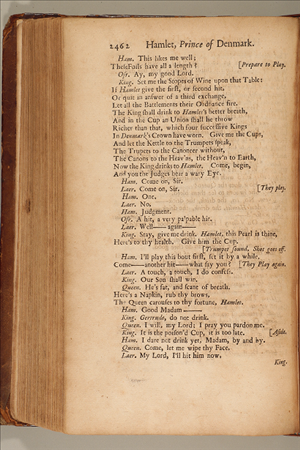 2462 Hamlet, Prince of Denmark.
Ham. This likes me well;
These Foils have all a length? [Prepare to Play.
Osr. Ay, my good Lord.
King. Set me the Stopes of Wine upon that Table:
If Hamlet give the first, or second hit,
Or quit in answer of a third exchange,
Let all the Battlements their Ordnance fire.
The King shall drink to Hamlet's better breath,
And in the Cup an Union shall he throw
Richer than that, which four successive Kings
In Denmark's Crown have worn. Give me the Cups,
And let the Kettle to the Trumpets speak,
The Trumpets to the Canoneer without,
The Canons to the Heav'ns, the Heav'n to Earth,
Now the King drinks to Hamlet. Come, begin,
And you the Judges bear a wary Eye.
Ham. Come on, Sir.
Laer. Come on, Sir. [They play.
Ham. One.
Laer. No.
Ham. Judgment.
Osr. A hit, a very palpable hit.
Laer. Well—— again——
King. Stay, give me drink. Hamlet, this Pearl is thine,
Here's to thy health. Give him the Cup,
[Trumpet sound. Shot goes off.
Ham. I'll play this bout first, set it by a while.
Come——another hit——what say you? [They Play again.
Laer. A touch, a touch, I do confess.
King. Our Son shall win.
Queen. He's fat, and scant of breath.
Here's a Napkin, rub thy brows,
The Queen carouses to thy fortune, Hamlet.
Ham. Good Madam——
King. Gertrude, do not drink.
Queen. I will, my Lord; I pray you pardon me.
King. It is the poison'd Cup, it is too late. [Aside.
Ham. I dare not drink yet, Madam, by and by.
Queen. Come, let me wipe thy Face.
Laer. My Lord, I'll hit him now.
King.